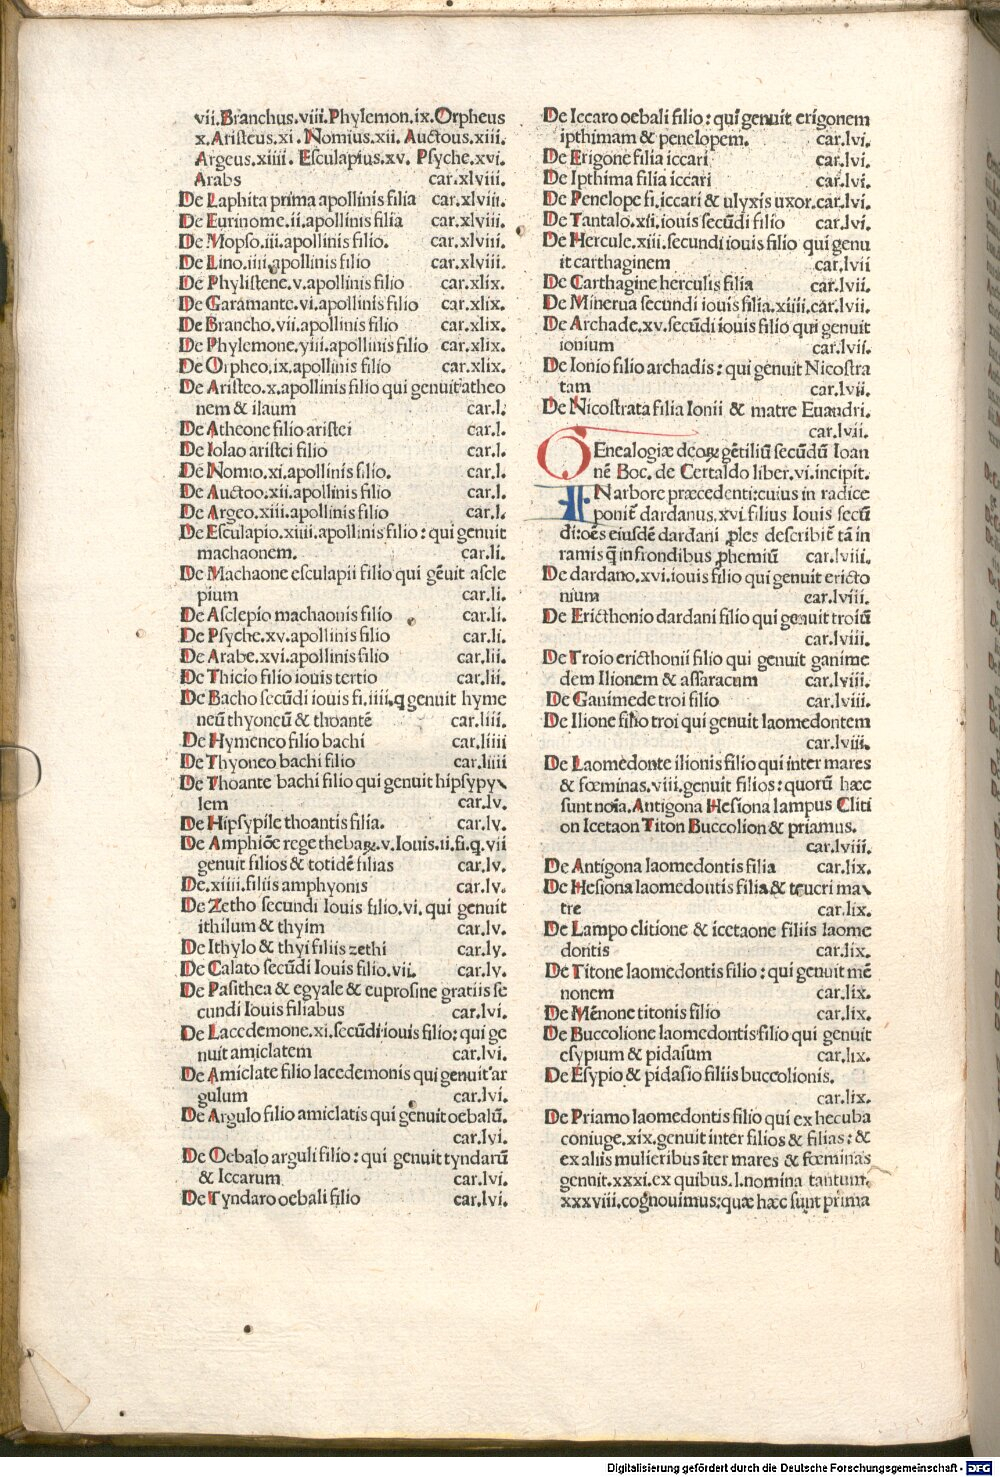 vii.Branchus.viii.Phylemon.ix.Orpheus
x.Aristeus.xi.Nomius.xii.Auctous.xiii.
Argeus.xiiii.Esculapius.xv.Psyche.xvi.
Arabs car.xlviii.
De Laphita prima apollinis filia car.xlviii.
De Eurinome.ii.apollinis filia car.xlviii.
De Mopso.iii.apollinis filio. car.xlviii.
De Lino.iiii.apollinis filio car.xlviii.
De Phylistene.v.apollinis filio car.xlix.
De Garamante.vi.apollinis filio car.xlix.
De Brancho.vii.apollinis filio car.xlix.
De Phylemone.viii.apollinis filio car.xlix.
De Orpheo.ix.apollinis filio car.xlix.
De Aristeo.x.apollinis filio qui genuit atheo
nem & ilaum car.l.
De Atheone filio aristei car.l.
De Iolao aristei filio car.l.
De Nomio.xi.apollinis filio. car.l.
De Auctoo.xii.apollinis filio car.l.
De Argeo.xiii.apollinis filio car.l.
De Esculapio.xiiii.apollinis filio: qui genuit
machaonem. car.li.
De Machaone esculapii filio qui gēuit ascle
pium car.li.
De Asclepio machaonis filio car.li.
De Psyche.xv.apollinis filio car.li.
De Arabe.xvi.apollinis filio car.lii.
De Thicio filio iouis tertio car.lii.
De Bacho secūdi iouis fi.iiii.q genuit hyme
neū thyoneū & thoantē car.liii.
De Hymeneo filio bachi car.liiii
De Thyoneo bachi filio car.liiii
De Thoante bachi filio qui genuit hipsypy
lem car.lv.
De Hipsypile thoantis filia. car.lv.
De Amphiōe rege thebaꝝ.v.Iouis.ii.fi.q.vii
genuit filios & totidē filias car.lv.
De.xiiii.filiis amphyonis car.lv.
De Zetho secundi Iouis filio.vi.qui genuit
ithilum & thyim car.lv.
De Ithylo & thyi filiis zethi car.lv.
De Calato secūdi Iouis filio.vii. car.lv.
De Pasithea & egyale & euprosine gratiis se
cundi Iouis filiabus car.lvi.
De Lacedemone.xi.secūdi iouis filio: qui ge
nuit amiclatem car.lvi.
De Amiclate filio lacedemonis qui genuit ar
gulum car.lvi.
De Argulo filio amiclatis qui genuit oebalū.
car.lvi.
De Oebalo arguli filio: qui genuit tyndarū
& Iccarum car.lvi.
De Tyndaro oebali filio car.lvi.
De Iccaro oebali filio: qui genuit erigonem
ipthimam & penelopem. car.lvi.
De Erigone filia iccari car.lvi.
De Ipthima filia iccari car.lvi.
De Penelope fi.iccari & ulyxis uxor.car.lvi.
De Tantalo.xii.iouis secūdi filio car.lvi.
De Hercule.xiii.secundi iouis filio qui genu
it carthaginem car.lvii
De Carthagine herculis filia car.lvii.
De Minerua secundi iouis filia.xiiii.car.lvii.
De Archade.xv.secūdi iouis filio qui genuit
ionium car.lvii.
De Ionio filio archadis: qui genuit Nicostra
tam car.lvii.
De Nicostrata filia Ionii & matre Euandri.
car.lvii.
GEnealogiæ deoꝝ gētiliū secūdū Ioan
nē Boc. de Certaldo liber.vi.incipit.
IN arbore præcedenti:cuius in radice
ponit̄ dardanus.xvi.filius Iouis secū
di:oēs eiusdē dardani ꝓles describit̄ tā in
ramis q̄ in frondibus ꝓhemiū car.lviii.
De dardano.xvi.iouis filio qui genuit ericto
nium car.lviii.
De Ericthonio dardani filio qui genuit troiū
car.lviii.
De Troio ericthonii filio qui genuit ganime
dem Ilionem & assaracum car.lviii.
De Ganimede troi filio car.lviii.
De Ilione filio troi qui genuit laomedontem
car.lviii.
De Laomedonte ilionis filio qui inter mares
& fœminas.viii.genuit filios: quorū hæc
sunt noīa.Antigona Hesiona lampus Cliti
on Icetaon Titon Buccolion & priamus.
car.lviii.
De Antigona laomedontis filia car.lix.
De Hesiona laomedontis filia & teucri ma
tre car.lix.
De Lampo clitione & icetaone filiis laome
dontis car.lix.
De Titone laomedontis filio: qui genuit mē
nonem car.lix.
De Mēnone titonis filio car.lix.
De Buccolione laomedontis filio qui genuit
esypium & pidasum car.lix.
De Esypio & pidasio filiis buccolionis.
car.lix.
De Priamo laomedontis filio qui ex hecuba
coniuge.xix.genuit inter filios & filias: &
ex aliis mulieribus īter mares & fœminas
genuit.xxxi.ex quibus.l.nomina tantum.
xxxviii.cognouimus:quæ hæc sunt prima
Digitalisierung gefördert durch die Deutsche Forschungsgemeinschaft - DFG